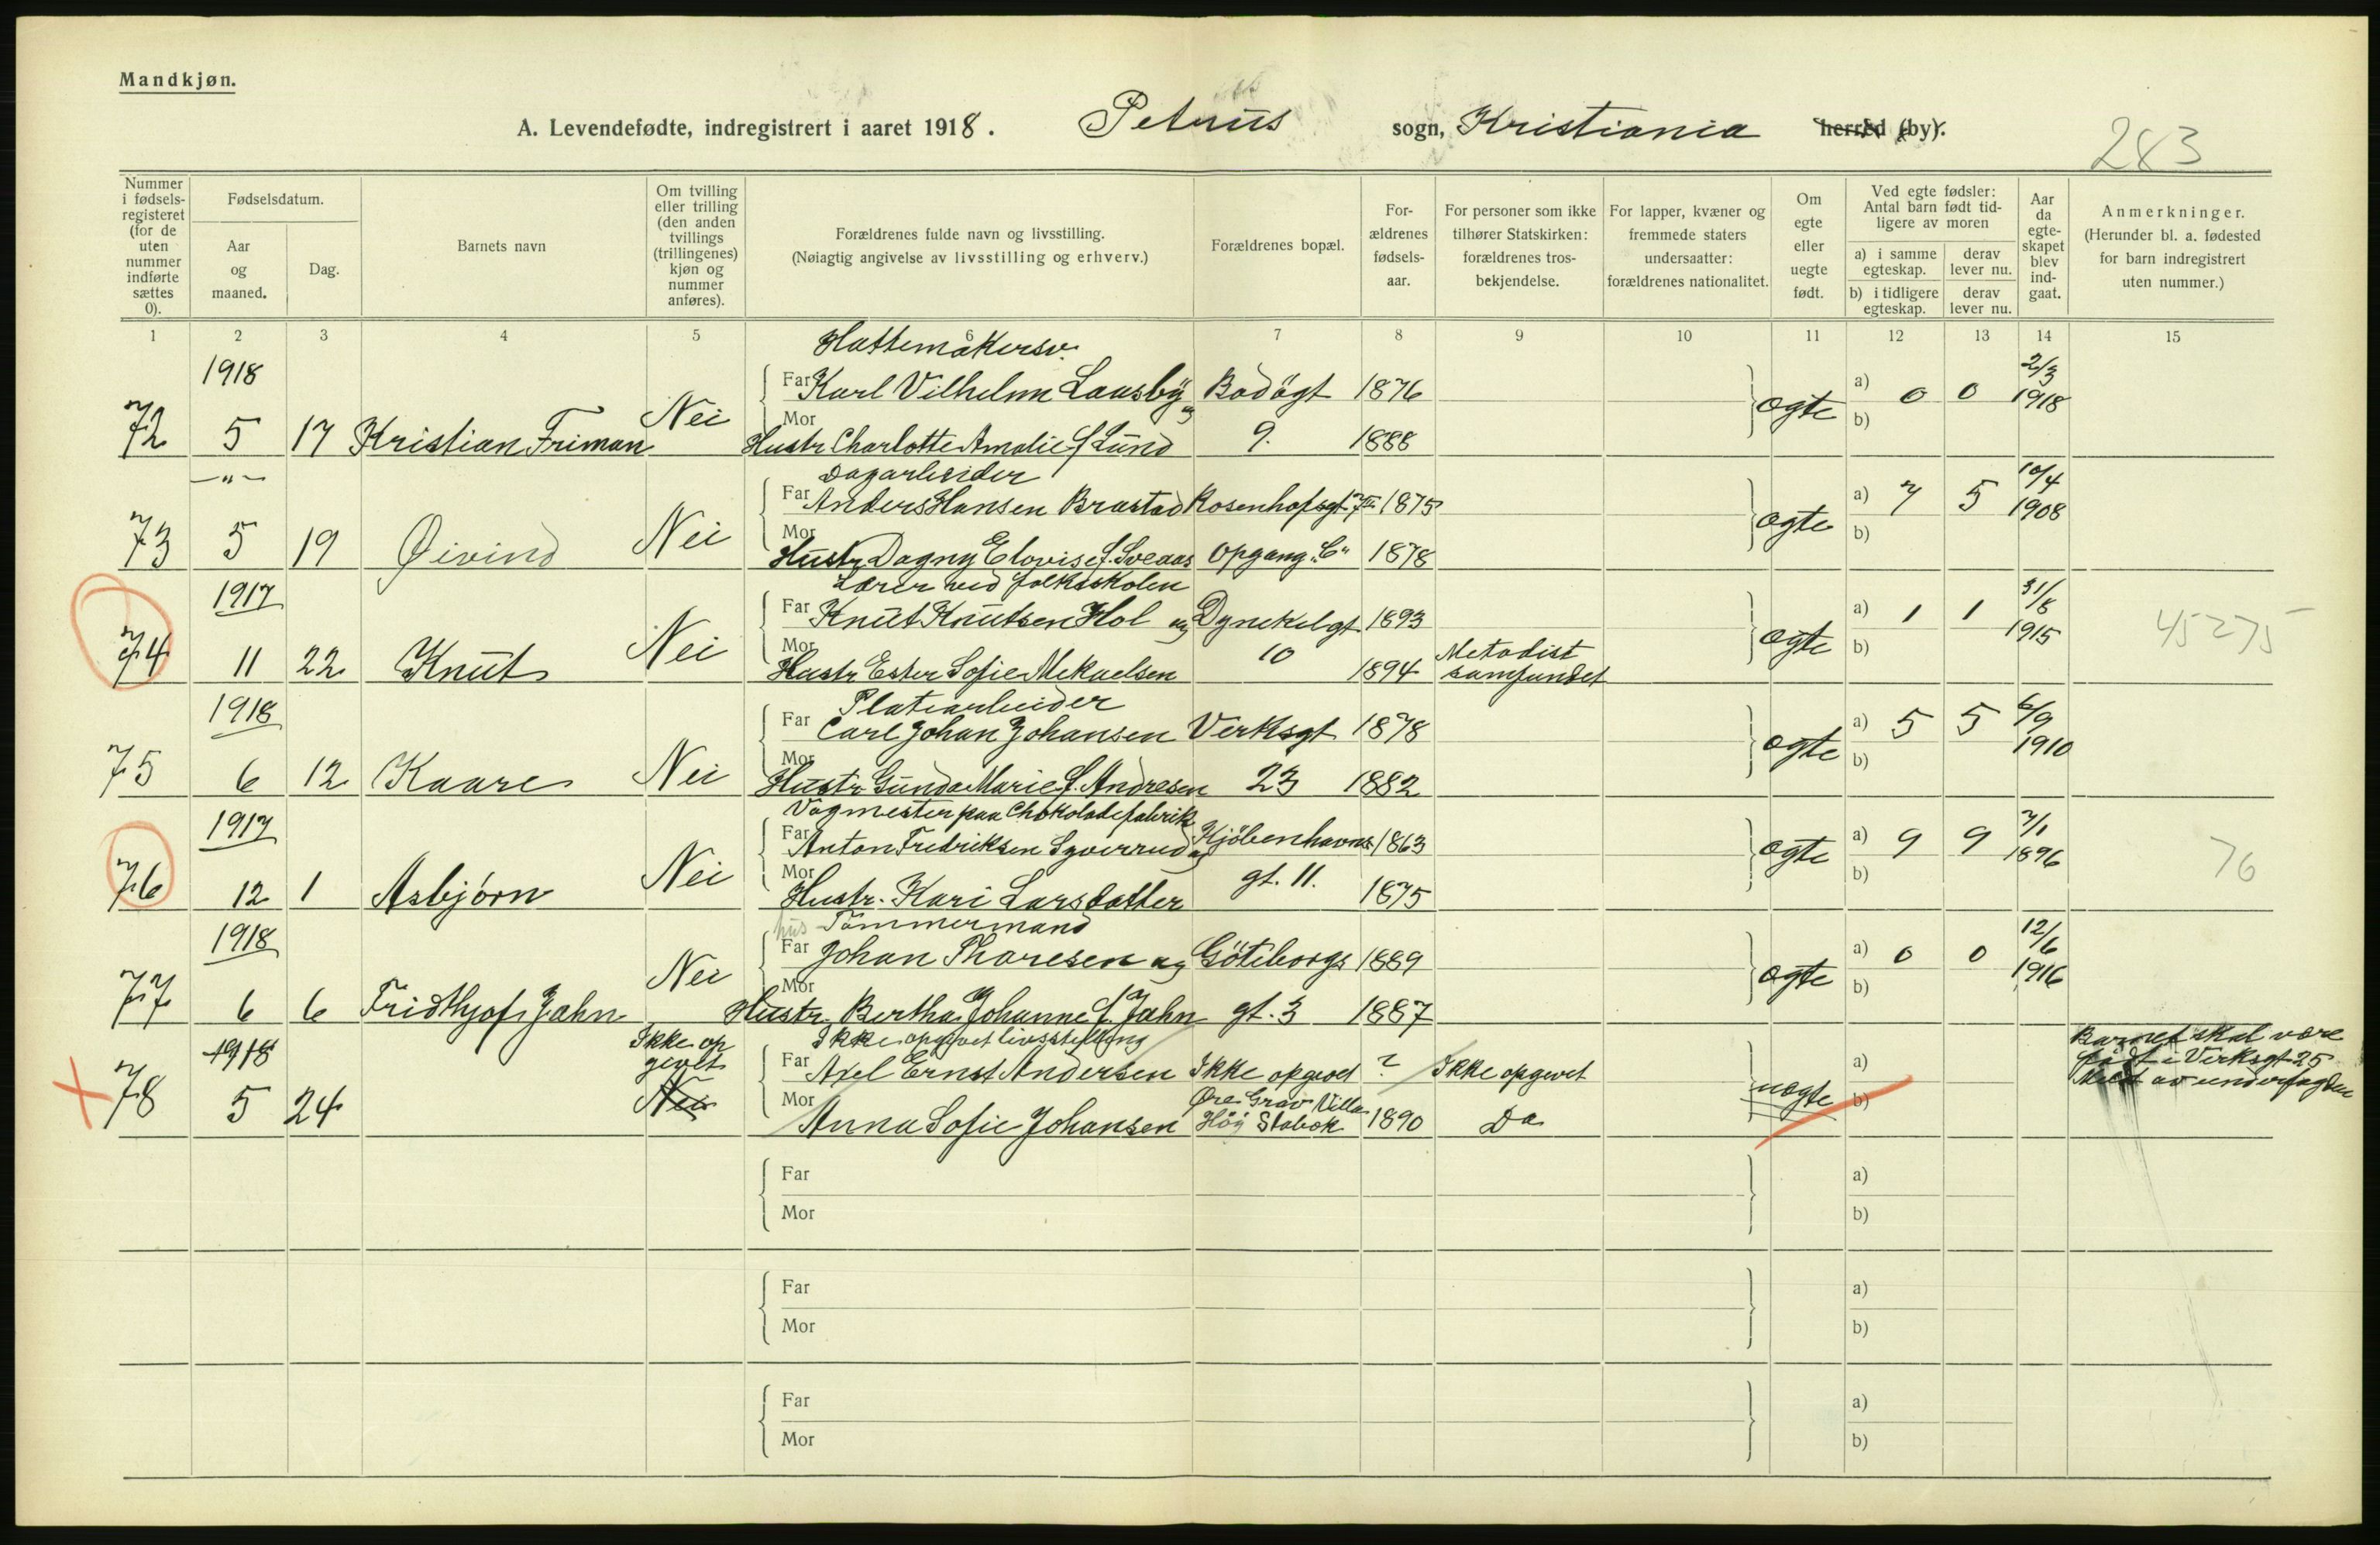 Mandkjøn.
A. Levendefødte, indregistrert i aaret 1918. Petrus sogn, Kristiania herred (by).
283
Nummer i fødselsregisteret (for de uten nummer indførte sættes 0).
Fødselsdatum.
Aar og maaned.
Dag.
Barnets navn
Om tvilling eller trilling (den anden tvillings (trillingenes) kjøn og nummer anføres).
Forældrenes fulde navn og livsstilling.
(Nøiagtig angivelse av livsstilling og erhverv.)
Forældrenes bopæl.
Forældrenes fødselsaar.
For personer som ikke tilhører Statskirken: forældrenes trosbekjendelse.
For lapper, kvæner og fremmede staters undersaatter: forældrenes nationalitet.
Om egte eller uegte født.
Ved egte fødsler: Antal barn født tidligere av moren
a) i samme egteskap.
derav lever nu.
b) i tidligere egteskap.
derav lever nu.
Aar da egteskapet blev indgaat.
Anmerkninger.
(Herunder bl. a. fødested for barn indregistrert uten nummer.)
1 2 3 4 5 6 7 8 9 10 11 12 13 14 15
1918 Hattemakersv. 2/3
Far Karl Vilhelm Lausby og Bodøgt 1876 a) 0 0 1918
72 5 17 Kristian Friman Nei Mor Hustr Charlotte Amalie f Lund 9. 1888 egte b)
—"— Dagarbeider 10/4
Far Anders Hansen Brastad Rosenhofsgt 7 III 1875 a) 7 5 1908
73 5 19 Øivind Nei Mor Hustr Dagny Elovise f. Sveaas Opgang "C" 1878 egte b)
1917 Lærer ved folkeskolen 31/8
Far Knut Knutsen Hol og Dynekilgt 1893 a) 1 1 1915
74 11 22 Knut Nei Mor Hustr Ester Sofie Mekaelsen 10 1894 Metodist samfundet egte b) 45275
1918 Platearbeider 6/9
Far Carl Johan Johansen Verksgt 1878 a) 5 5 1910
75 6 12 Kaare Nei Mor Hustr Gunda Marie f. Andresen 23 1882 egte b)
1917 Vogmester paa Chokoladefabrik 7/1
Far Anton Fredriksen Syverrud og Kjøbenhavns 1863 a) 9 9 1896
76 12 1 Asbjørn Nei Mor Hustr. Kari Larsdatter gt. 11. 1875 egte b) 76
1918 hus Tømmermand 12/6
Far Johan Tharesen og Gøteborgs 1889 a) 0 0 1916
77 6 6 Fridthjof Jahn Nei Mor Hustr. Bertha Johanne f. Jahn gt. 3 1887 egte b)
1918 Ikke opgivet Ikke opgivet livsstilling Barnet skal være
Far Axel Ernst Andersen Ikke opgivet ? Ikke opgivet a) født i Verksgt 25
78 5 24 Nei Mor Anna Sofie Johansen Øre Grav Villa Høy Stabæk 1890 Do uegte b)
Far a)
Mor b)
Far a)
Mor b)
Far a)
Mor b)